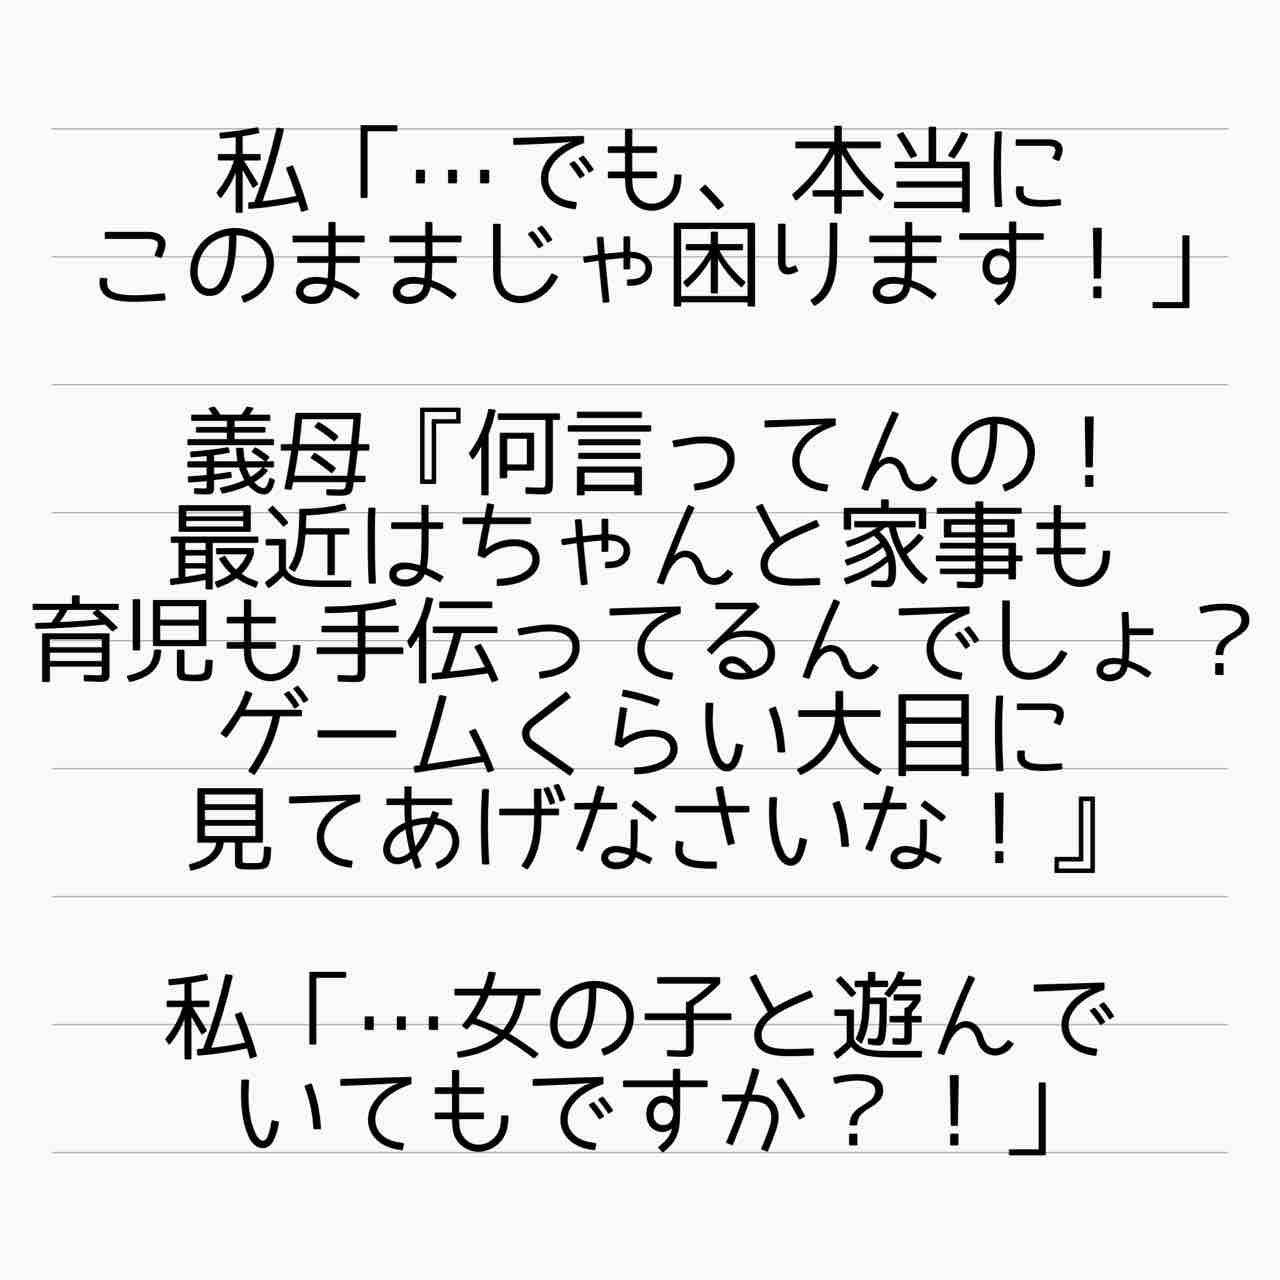 私「…でも、本当に
このままじゃ困ります！」
義母『何言ってんの！
最近はちゃんと家事も
育児も手伝ってるんでしょ？
ゲームくらい大目に
見てあげなさいな！』
私「…女の子と遊んで
いてもですか？！」